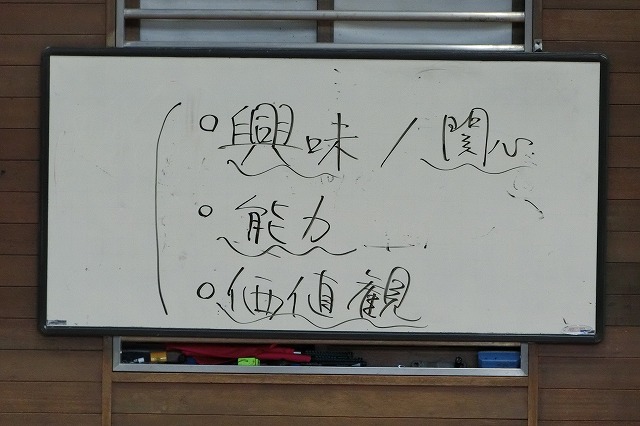 ○ 興味 / 関心
○ 能力
○ 価値観